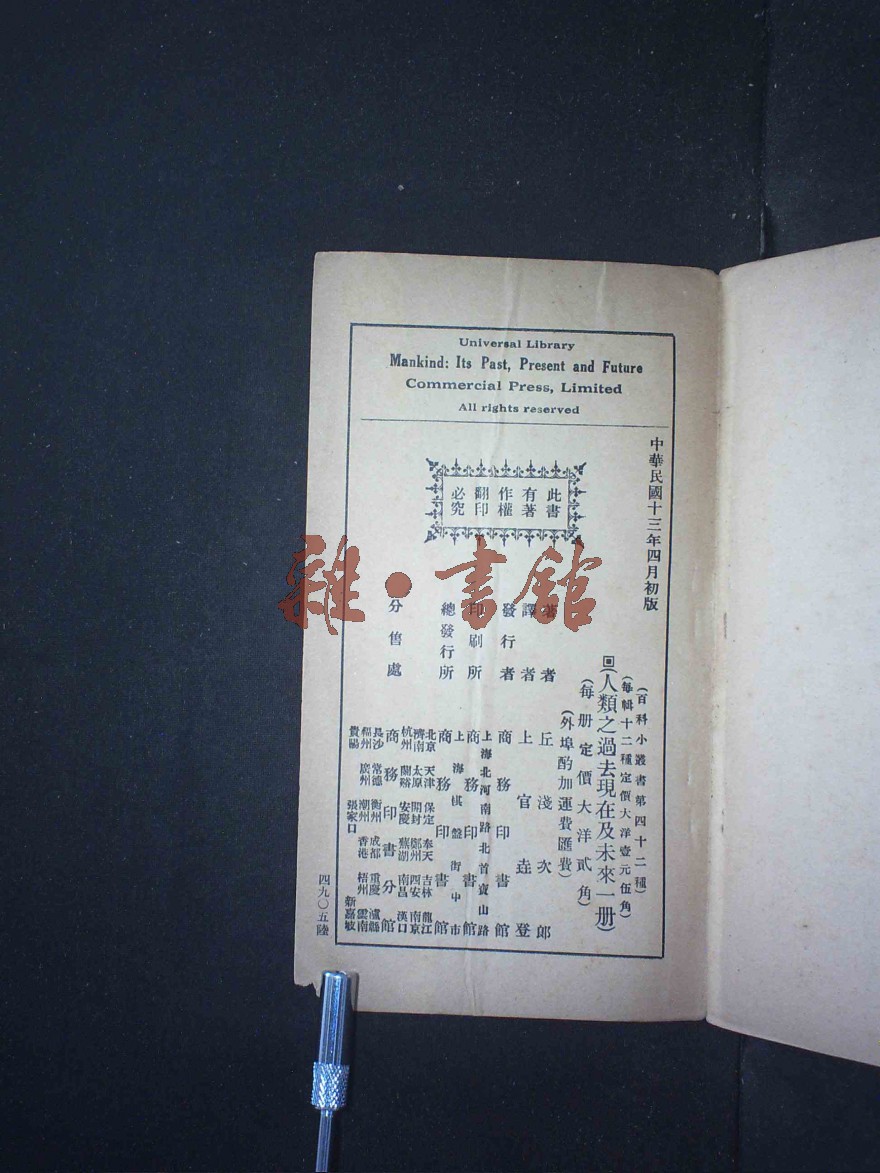 Universal Library
Mankind: Its Past, Present and Future
Commercial Press, Limited
All rights reserved
中華民國十三年四月初版
此書
有著
作權
翻印
必究
(百科小叢書第四十二種)
(每輯十二種定價大洋壹元伍角)
回(人類之過去現在及未來一册)
(每册定價大洋貳角)
(外埠酌加運費匯費)
著者 丘淺次郎
譯者 上官垚登
發行者 商務印書館
印刷所 上海北河南路北首寶山路 商務印書館
總發行所 上海棋盤街中市 商務印書館
分售處 商務印書分館
北京 天津 保定 奉天 吉林 龍江
濟南 太原 開封 鄭州 西安 南京
杭州 蘭谿 安慶 蕪湖 南昌 漢口
長沙 常德 衡州 成都 重慶 瀘縣
福州 廣州 潮州 香港 梧州 雲南
貴陽 張家口 新嘉坡
四九〇五陸
雜·書館